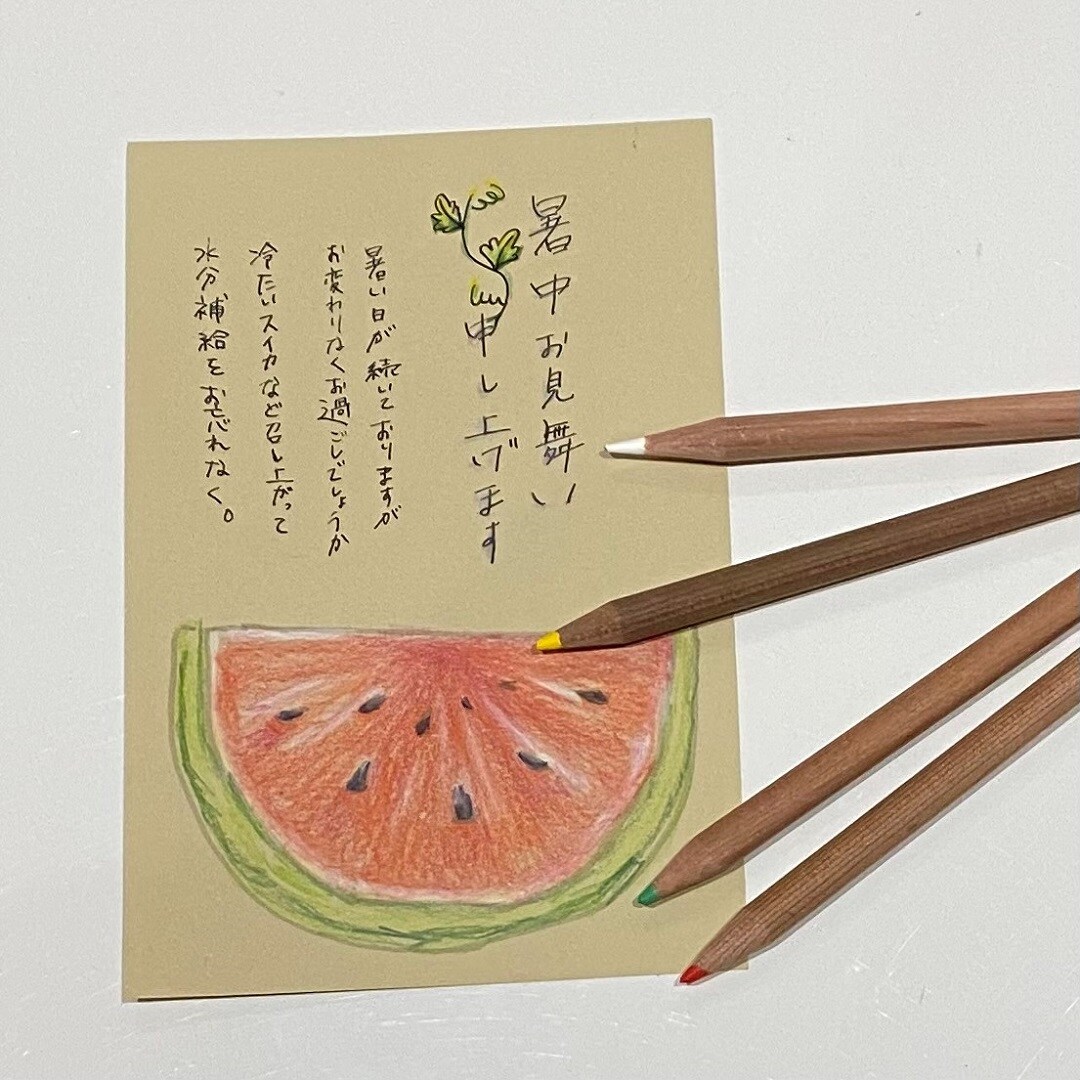 暑中お見舞い
申し上げます
暑い日が続いておりますが
お変わりなくお過ごしでしょうか
冷たいスイカなど召し上がって
水分補給をお忘れなく。